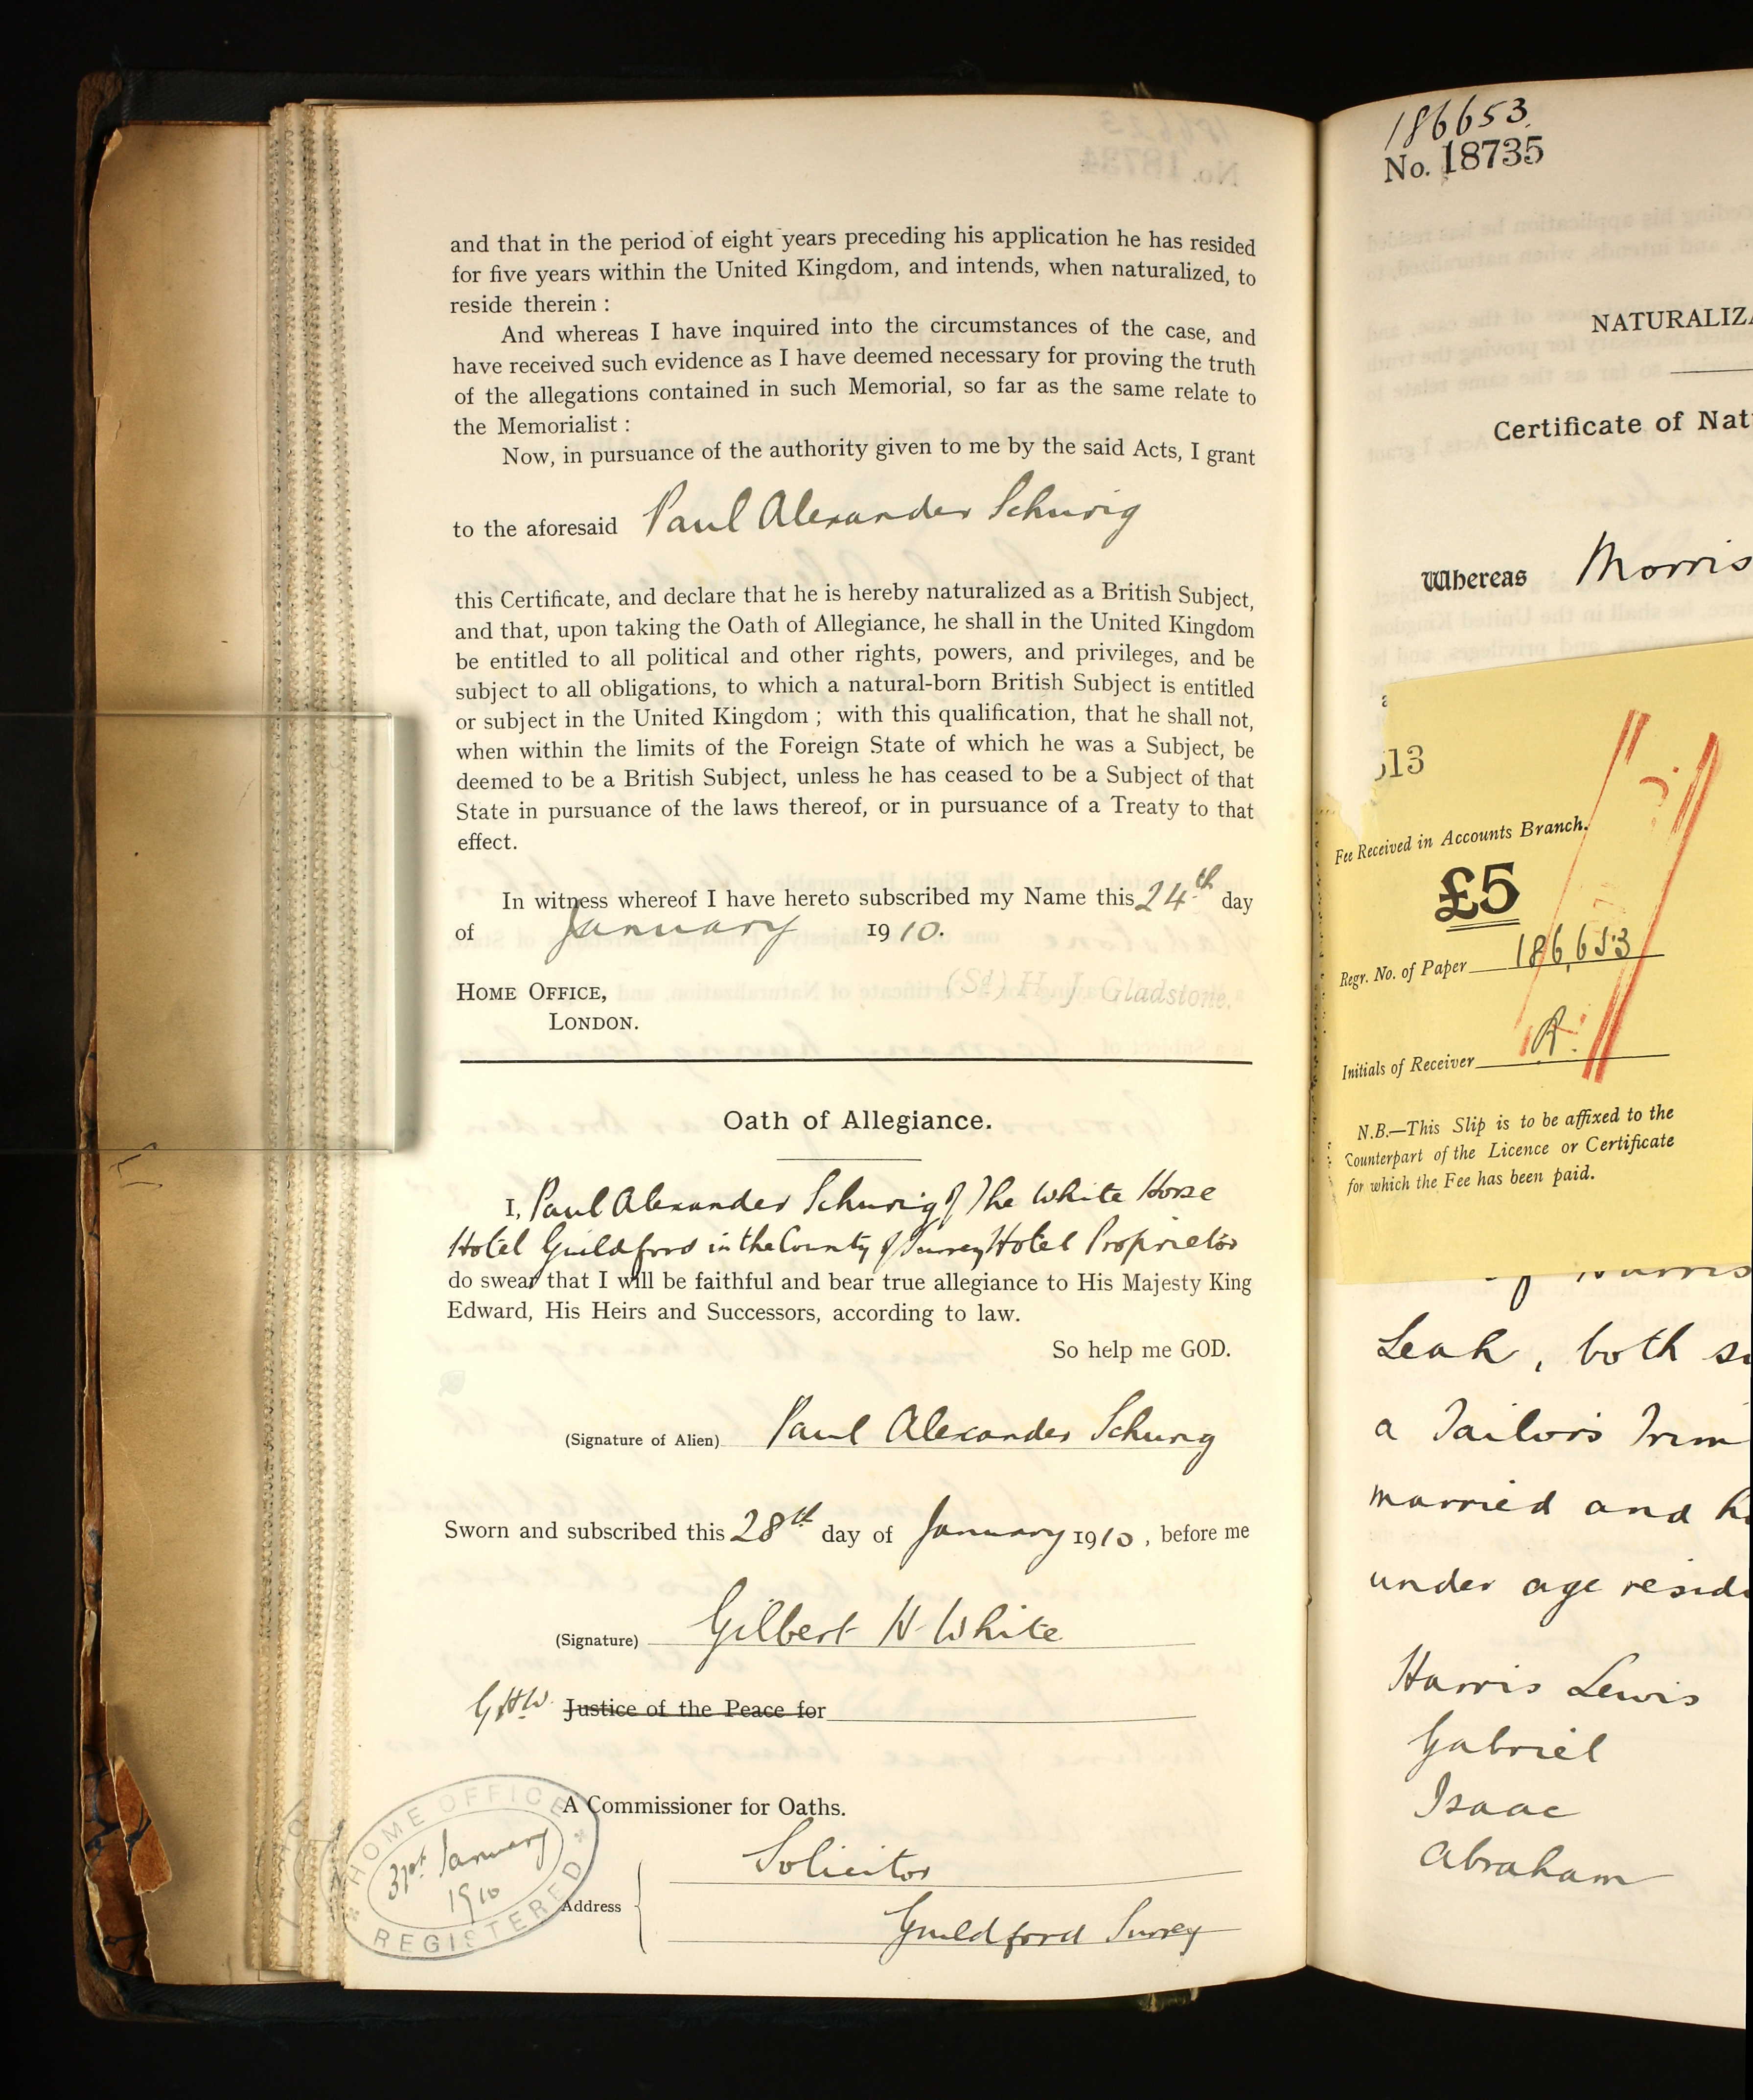 and that in the period of eight years preceding his application he has resided
for five years within the United Kingdom, and intends, when naturalized, to
reside therein :
And whereas I have inquired into the circumstances of the case, and
have received such evidence as I have deemed necessary for proving the truth
of the allegations contained in such Memorial, so far as the same relate to
the Memorialist :
Now, in pursuance of the authority given to me by the said Acts, I grant
to the aforesaid Paul Alexander Schurig
this Certificate, and declare that he is hereby naturalized as a British Subject,
and that, upon taking the Oath of Allegiance, he shall in the United Kingdom
be entitled to all political and other rights, powers, and privileges, and be
subject to all obligations, to which a natural-born British Subject is entitled
or subject in the United Kingdom ; with this qualification, that he shall not,
when within the limits of the Foreign State of which he was a Subject, be
deemed to be a British Subject, unless he has ceased to be a Subject of that
State in pursuance of the laws thereof, or in pursuance of a Treaty to that
effect.
In witness whereof I have hereto subscribed my Name this 24th day
of January 1910.
(Sd) H J Gladstone.
HOME OFFICE,
LONDON.
Oath of Allegiance.
I, Paul Alexander Schurig of The White Horse
Hotel Guildford in the County of Surrey Hotel Proprietor
do swear that I will be faithful and bear true allegiance to His Majesty King
Edward, His Heirs and Successors, according to law.
So help me GOD.
(Signature of Alien) Paul Alexander Schurig
Sworn and subscribed this 28th day of January 1910, before me
(Signature) Gilbert H White
GHW. Justice of the Peace for
A Commissioner for Oaths.
Address Solicitor
Guildford Surrey
HOME OFFICE
31st January
1910
REGISTERED
186653
No. 18735
NATURALIZA
Certificate of Nat
Whereas Morris
513
Fee Received in Accounts Branch.
£5
Regr. No. of Paper 186,653
Initials of Receiver R.
N.B.—This Slip is to be affixed to the
Counterpart of the Licence or Certificate
for which the Fee has been paid.
Leah, both su
a Tailor's Trim
married and h
under age resid
Harris Lewis
Gabriel
Isaac
Abraham